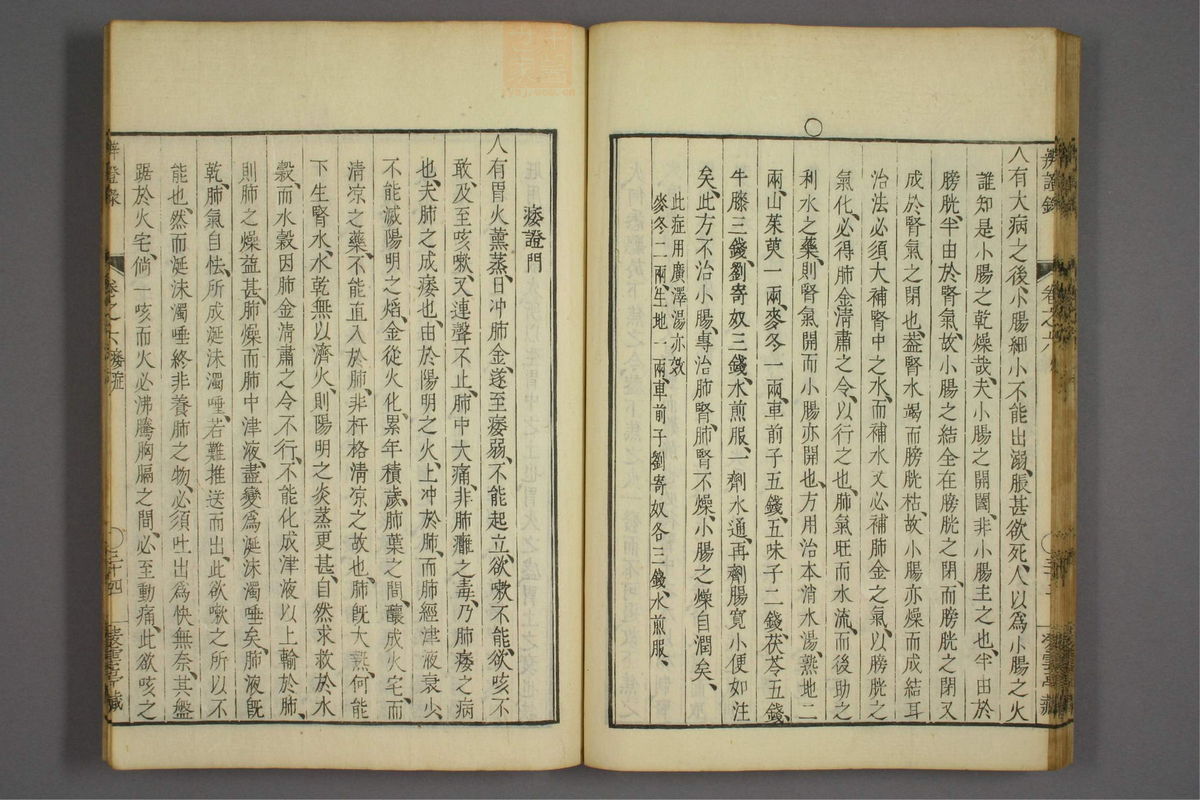 人有大病之後、小腸細小不能出溺、脹甚欲死、人以爲小腸之火
誰知是小腸之乾燥哉、夫小腸之開闔、非小腸主之也、半由於
膀胱、半由於腎氣、故小腸之結全在膀胱之閉、而膀胱之閉又
成於腎氣之閉也、蓋腎水竭而膀胱枯、故小腸亦燥而成結耳
治法必須大補腎中之水、而補水又必補肺金之氣、以膀胱之
氣化、必得肺金淸肅之令、以行之也、肺氣旺而水流、而後助之
利水之藥、則腎氣開而小腸亦開也、方用治本消水湯、熟地二
兩、山茱萸一兩、麥冬一兩、車前子五錢、五味子二錢、茯苓五錢、
牛膝三錢、劉寄奴三錢、水煎服、一劑水通、再劑腸寬小便如注
矣、此方不治小腸、專治肺腎、肺腎不燥、小腸之燥自潤矣、
此症用廣澤湯亦效
麥冬二兩、生地一兩、車前子劉寄奴各三錢、水煎服、
辨證錄
卷之六
痿證門
人有胃火薰蒸、日冲肺金、遂至痿弱、不能起立、欲嗽不能欲咳不
敢、及至咳嗽、又連聲不止、肺中大痛、非肺癰之毒、乃肺痿之病
也、夫肺之成痿也、由於陽明之火、上冲於肺、而肺經津液衰少、
不能滅陽明之熖、金從火化、累年積歲、肺葉之間、釀成火宅、而
淸凉之藥、不能直入於肺、非杆格淸凉之故也、肺旣大熱、何能
下生腎水、水乾無以濟火、則陽明之炎蒸更甚、自然求救於水
穀、而水穀因肺金淸肅之令不行、不能化成津液以上輸於肺、
則肺之燥益甚、肺燥而肺中津液、盡變爲涎沫濁唾矣、肺液旣
乾、肺氣自怯、所成涎沫濁唾、若難推送而出、此欲嗽之所以不
能也、然而涎沫濁唾終非養肺之物、必須吐出爲快無奈、其盤
踞於火宅、倘一咳而火必沸騰胸膈之間、必至動痛、此欲咳之
辨證錄
卷之六痿症
三十四